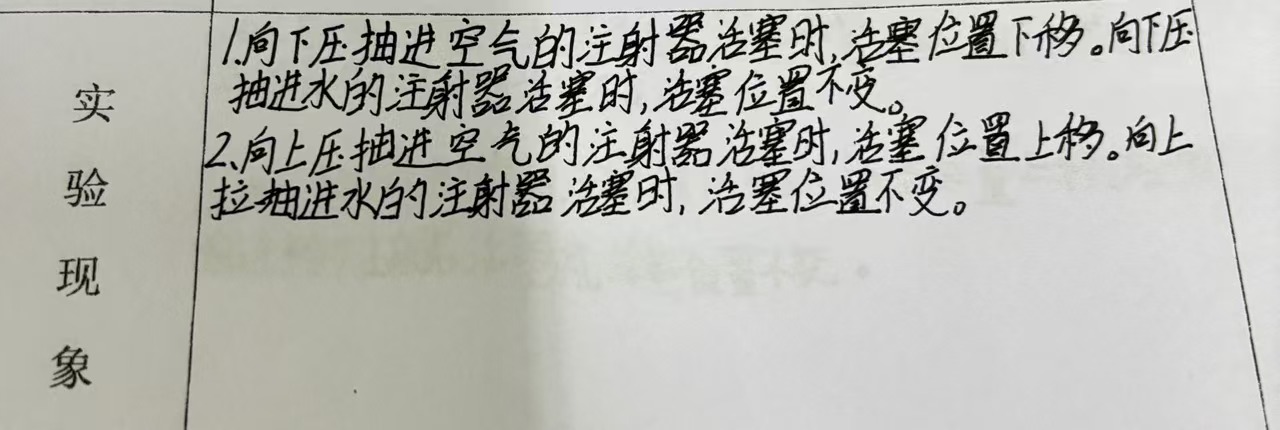 实验现象
1.向下压抽进空气的注射器活塞时,活塞位置下移。向下压
抽进水的注射器活塞时,活塞位置不变。
2.向上压抽进空气的注射器活塞时,活塞位置上移。向上
拉抽进水的注射器活塞时,活塞位置不变。